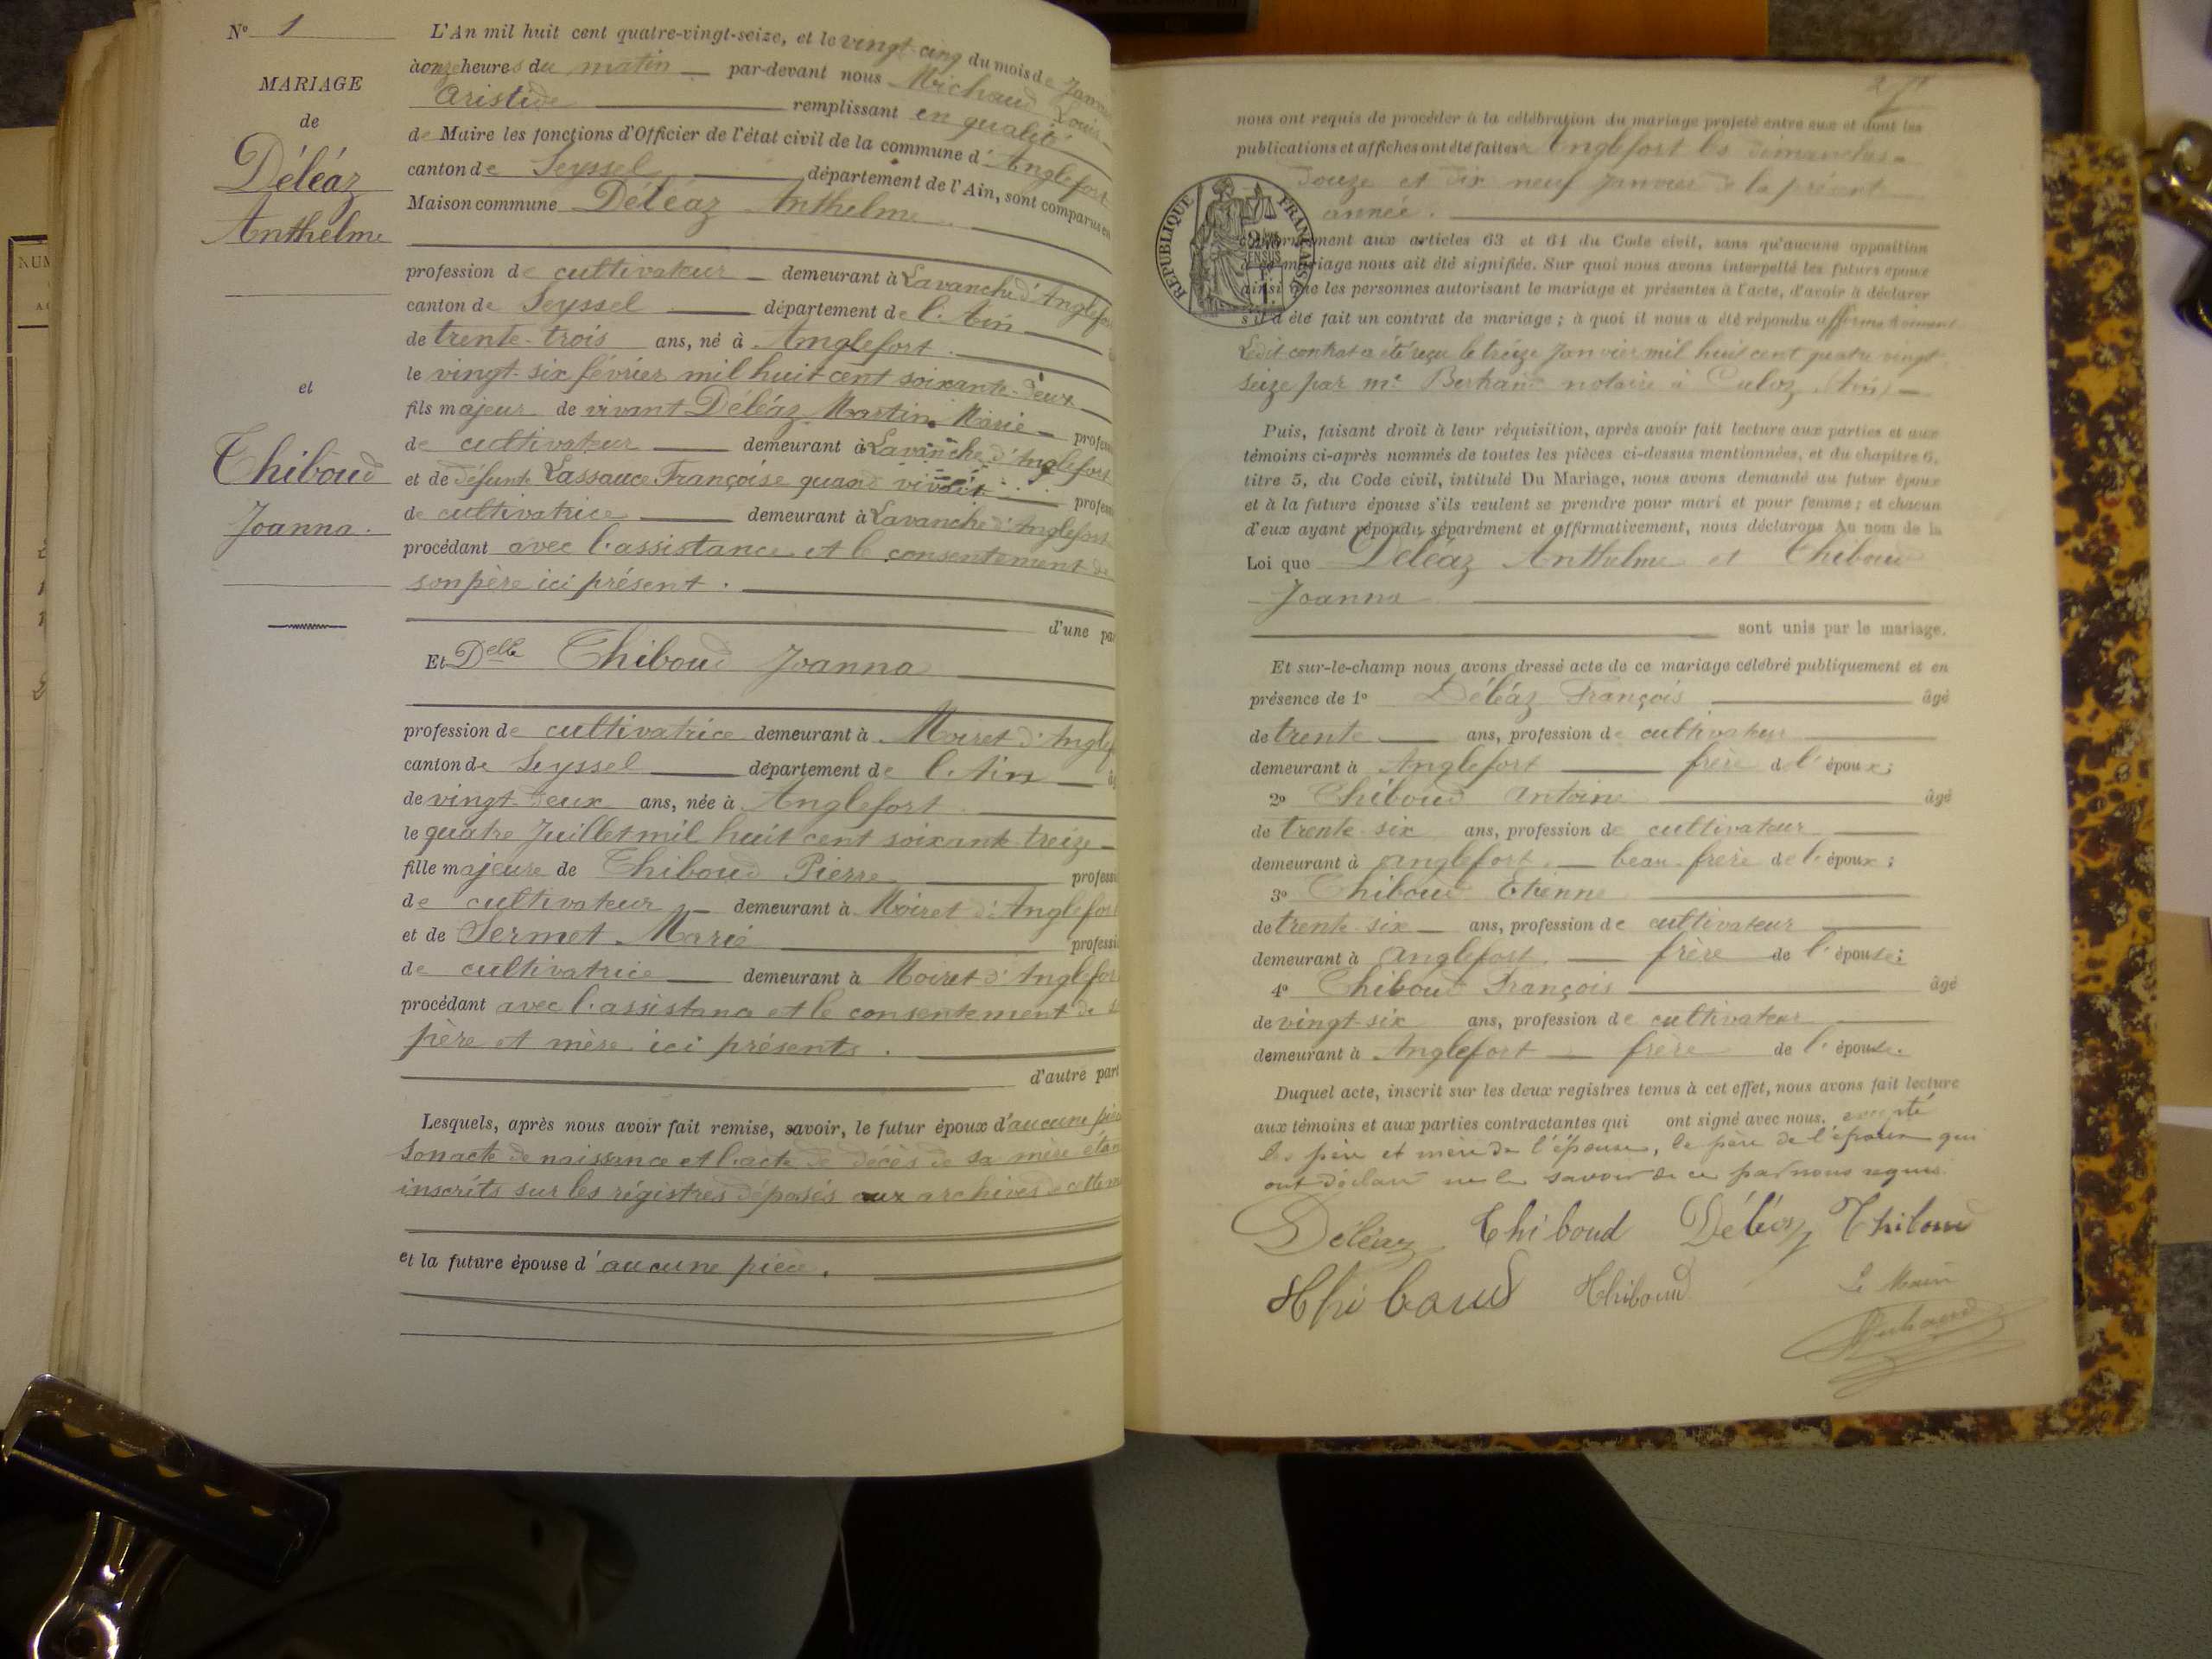 N° 1
MARIAGE
de
Déléaz
Anthelme
et
Thiboud
Joanna.
L'An mil huit cent quatre-vingt-seize, et le vingt-cinq du mois de
à onze heures du matin par-devant nous Michaud Louis
Aristide remplissant en qualité
de Maire les fonctions d'Officier de l'état civil de la commune d'Anglefort
canton de Seyssel département de l'Ain, sont comparus en
Maison commune Déléaz Anthelme
profession de cultivateur demeurant à Lavanche d'
canton de Seyssel département de l'Ain
de trente-trois ans, né à Anglefort
le vingt-six février mil huit cent soixante-deux
fils majeur de vivant Déléaz Martin Marie
de cultivateur demeurant à Lavanche d'Anglefort
et de défunte Lassauce Françoise quand vivait
de cultivatrice demeurant à Lavanche d'Anglefort
procédant avec l'assistance et le consentement de
son père ici présent.
d'une
Et Delle Thiboud Joanna
profession de cultivatrice demeurant à Moiret d'
canton de Seyssel département de l'Ain
de vingt-deux ans, née à Anglefort
le quatre Juillet mil huit cent soixante-treize
fille majeure de Thiboud Pierre
de cultivateur demeurant à Moiret d'Anglefort
et de Sermet Marie
de cultivatrice demeurant à Moiret d'
procédant avec l'assistance et le consentement de
père et mère ici présents.
d'autre part
Lesquels, après nous avoir fait remise, savoir, le futur époux d'aucune
Son acte de naissance et l'acte de décès de sa mère
inscrits sur les régistres déposés aux archives
et la future épouse d'aucune pièce.
nous ont requis de procéder à la célébration du mariage projeté entre eux et dont les
publications et affiches ont été faites à Anglefort les dimanches
douze et dix neuf Janvier de la présente
année.
RÉPUBLIQUE FRANÇAISE
conformément aux articles 63 et 64 du Code civil, sans qu'aucune opposition
à ce mariage nous ait été signifiée. Sur quoi nous avons interpellé les futurs époux
ainsi que les personnes autorisant le mariage et présentes à l'acte, d'avoir à déclarer
s'il a été fait un contrat de mariage ; à quoi il nous a été répondu affirmativement
Ledit contrat a été reçu le treize Janvier mil huit cent quatre vingt
seize par me Bertrand notaire à Culoz (Ain)
Puis, faisant droit à leur réquisition, après avoir fait lecture aux parties et aux
témoins ci-après nommés de toutes les pièces ci-dessus mentionnées, et du chapitre 6,
titre 5, du Code civil, intitulé Du Mariage, nous avons demandé au futur époux
et à la future épouse s'ils veulent se prendre pour mari et pour femme ; et chacun
d'eux ayant répondu séparément et affirmativement, nous déclarons Au nom de la
Loi que Déléaz Anthelme et Thiboud
Joanna
sont unis par le mariage.
Et sur-le-champ nous avons dressé acte de ce mariage célébré publiquement et en
présence de 1° Déléaz François âgé
de trente ans, profession de cultivateur
demeurant à Anglefort frère de l'époux ;
2° Thiboud Antoine âgé
de trente six ans, profession de cultivateur
demeurant à Anglefort beau-frère de l'époux ;
3° Thiboud Etienne
de trente-six ans, profession de cultivateur
demeurant à Anglefort frère de l'épouse ;
4° Thiboud François âgé
de vingt-six ans, profession de cultivateur
demeurant à Anglefort frère de l'épouse.
Duquel acte, inscrit sur les deux registres tenus à cet effet, nous avons fait lecture
aux témoins et aux parties contractantes qui ont signé avec nous, excepté
les père et mère de l'épouse, le père de l'époux qui
ont déclaré ne le savoir de ce par nous requis
Déléaz Thiboud Déléaz Thiboud
Thiboud Thiboud Le Maire
Michaud